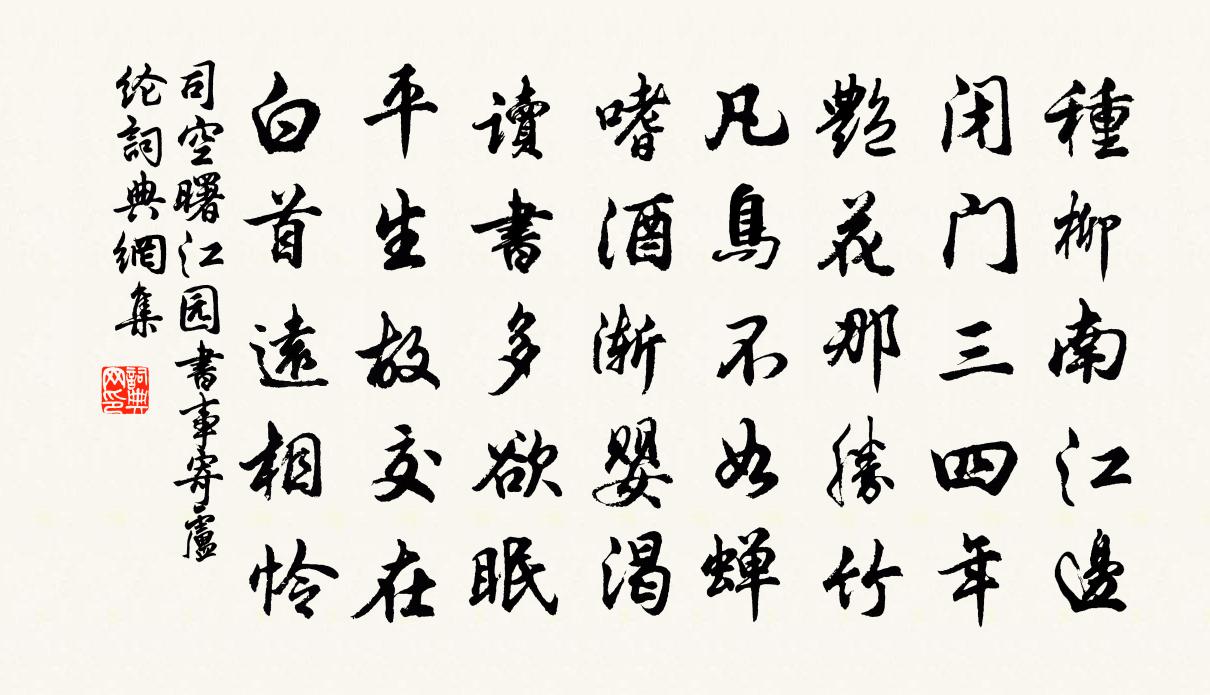 種柳南江邊
闭门三四年
艷花那勝竹
凡鳥不如蝉
嗜酒渐婴渴
讀書多欲眠
平生故交在
白首遠相怜
司空曙江园書事寄盧
纶詞典網集
詞典
网印